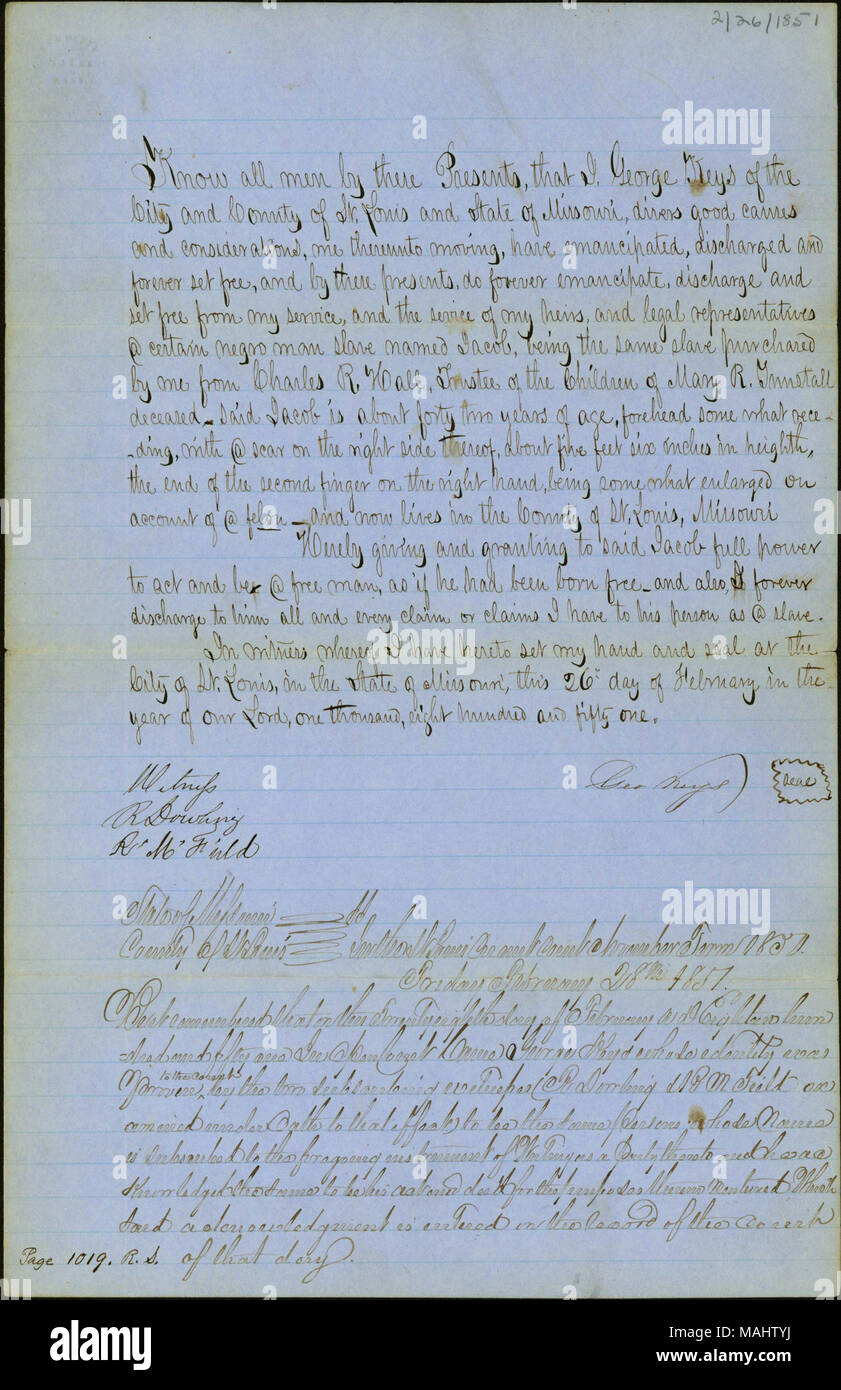 2/26/1851
Know all men by these Presents, that I, George Keys of the
City and County of St. Louis and State of Missouri, divers good causes
and considerations, me thereunto moving, have emancipated, discharged and
forever set free, and by these presents, do forever emancipate, discharge and
set free from my service, and the service of my heirs, and legal representatives
@ certain negro man slave named Jacob, being the same slave purchased
by me from Charles R. Hall, Trustee of the Children of Mary R. Tunstall
deceased – said Jacob is about forty two years of age, forehead some what rece-
-ding, with @ scar on the right side thereof, about five feet six inches in heighth,
the end of the second finger on the right hand, being some what enlarged on
account of @ felon – and now lives in the County of St. Louis, Missouri
Hereby giving and granting to said Jacob full power
to act and be @ free man, as if he had been born free – and also, I forever
discharge to him all and every claim or claims I have to his person as @ slave.
In witness whereof I have hereto set my hand and seal at the
City of St. Louis, in the State of Missouri, this 26th day of February in the
year of our Lord, one thousand, eight hundred and fifty one.
Witness Geo Keys) Seal
R Dowling
R. M. Field
State of Missouri ss
County of St Louis In the St Louis Circuit Court November Term 1850.
Friday February 28th 1851.
Be it remembered that on this Twenty eighth day of February AD Eighteen hun
dred and fifty one In Open Court Came George Keys whose identity was
Proven to the court by the two subscribing witnesses R Dowling & R M Field ex
amined under Oath to that effect to be the same Person whose Name
is subscribed to the foregoing instrument of Writing as a Party thereto and he ac
knowledged the same to be his act and deed for the purposes therein mentioned Which
said acknowledgment is entered on the record of the court
Page 1019. R. S. of that day.
alamy
Image ID: MAHTYJ
www.alamy.com